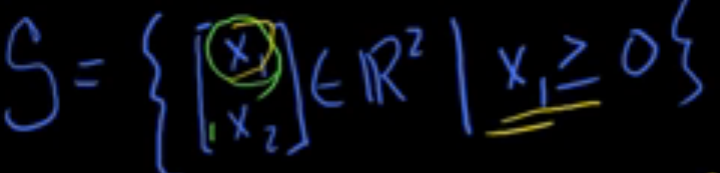 S = { [x₁ x₂] ∈ ℝ² | x₁ ≥ 0 }